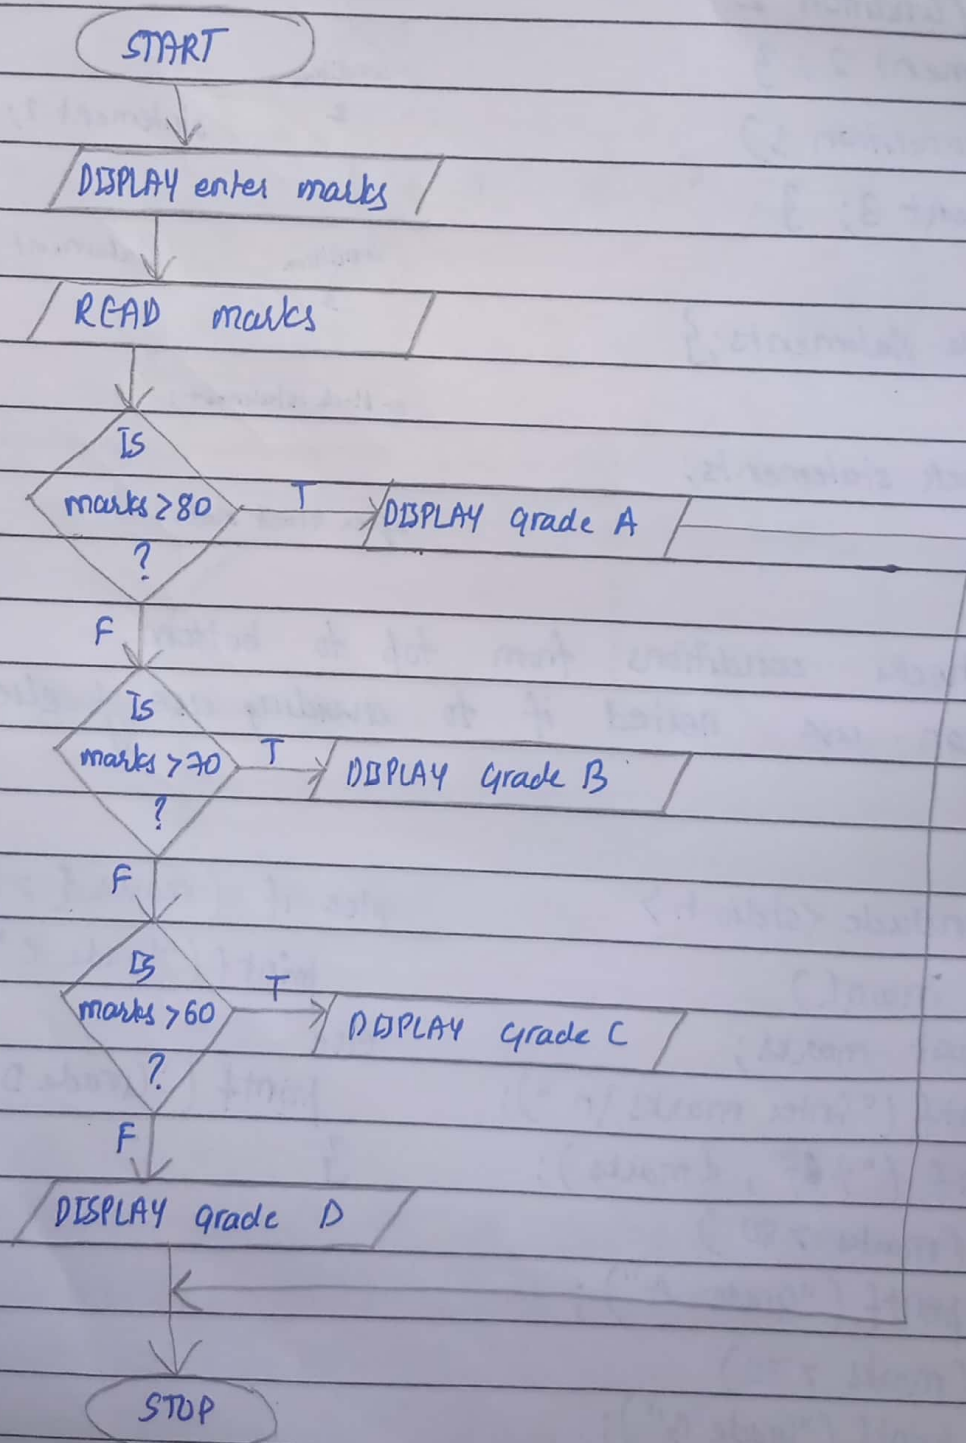 START
DISPLAY enter marks
READ marks
Is
marks >80
?
T
DISPLAY Grade A
F
Is
marks >70
?
T
DISPLAY Grade B
F
Is
marks >60
?
T
DISPLAY Grade C
F
DISPLAY Grade D
STOP